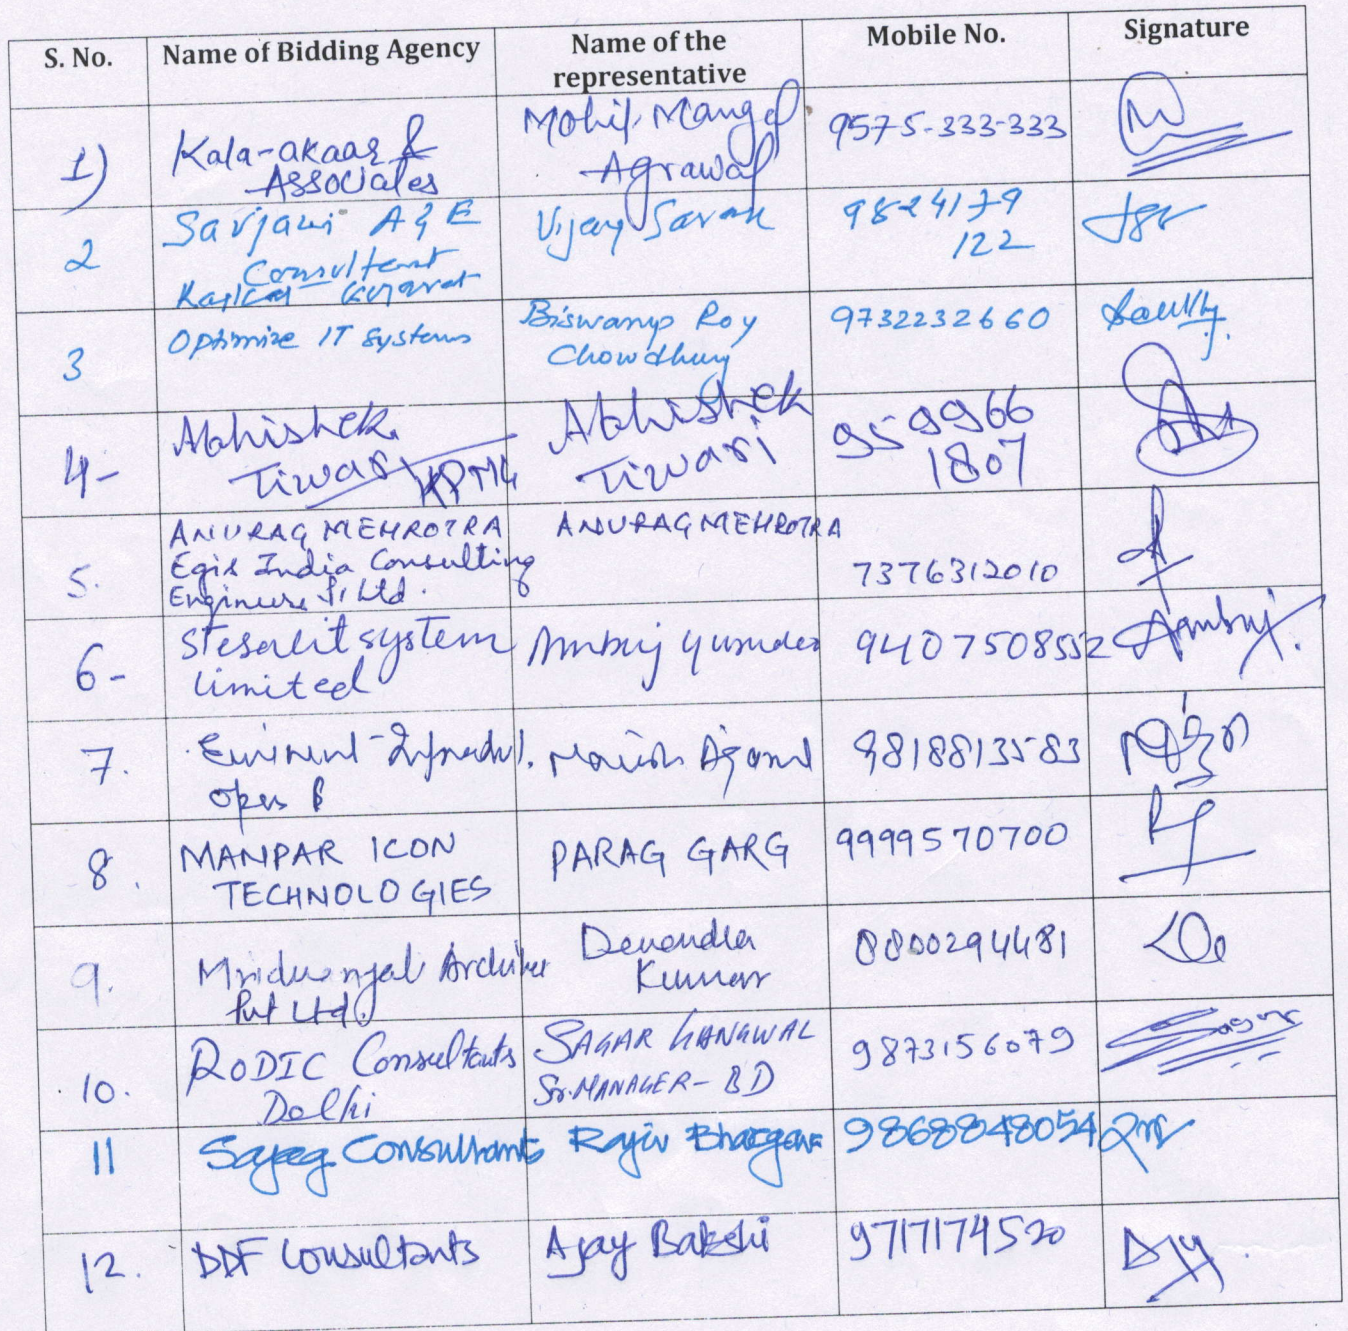 S. No.
Name of Bidding Agency
Name of the
representative
Mobile No.
Signature
1)
Kala-akaar &
Associates
Mohit Mangal
Agrawal
9575-333-333
2
Savjani A & E
Consultant
Gujarat
Vijay
9824179
122
3
Optimize IT Systems
Biswarup Roy
Chowdhury
9732232660
4-
Abhishek
Tiwari KPMG
Abhishek
Tiwari
959966
1807
5.
ANURAG MEHROTRA
Egis India Consulting
Engineers P. Ltd.
ANURAG MEHROTRA
7376312010
6-
Stesalit system
limited
Ambuj
9407508552
Ambuj
7.
Eminent
Manish
9818813583
8.
MANPAR ICON
TECHNOLOGIES
PARAG GARG
9999570700
9.
Pvt Ltd.
Devendra
Kumar
8800294481
10.
RODIC Consultants
Delhi
SAGAR GANGWAL
Sr. MANAGER - BD
9873156079
Sagar
11
Sajag Consultants
Rajiv Bhargava
9868848054
12.
DDF Consultants
Ajay Bakshi
9717174520